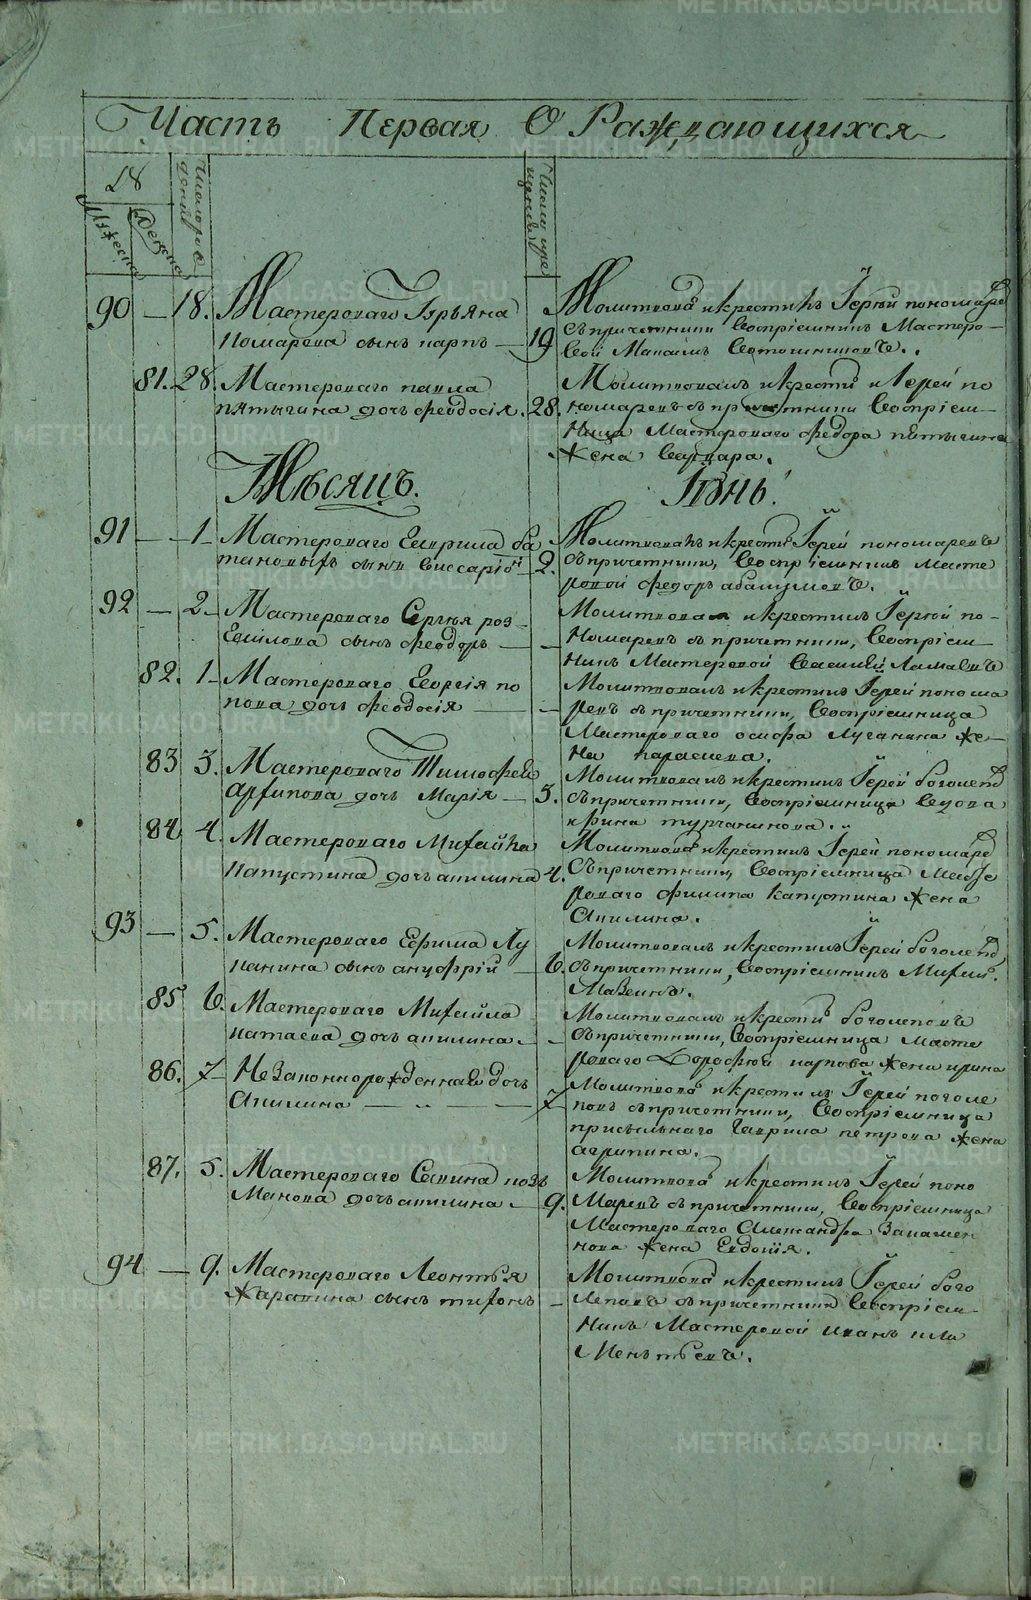 Часть Первая О Раждающихся
Мужеска
Женска
90 18. Мастероваго Гурьяна
Комарева сынъ карпъ 19
Молитвова и крестилъ Іерей пономарев
съ причетники Восприемникъ Мастеро-
вой Максимъ Сотошниковъ.
81. 28. Мастероваго павла
пятыгина дочь феодосія. 28.
Молитвовалъ и крести Іерей по
номаревъ съ причетники Восприем-
ница Мастероваго федора пятыгина
жена Варвара.
Мѣсяцъ. Іюнь
91 1 Мастероваго Гаврила ба
тиковыхъ сынъ Виссаріон 2.
Молитвовалъ и крести Іерей пономаревъ
съ причетники, Восприемникъ Масте
ровой федоръ абакумовъ.
92 2 Мастероваго Сергѣя роз-
сынъ феодоръ
Молитвовал и крестилъ Іерей по-
номаревъ съ причетники, Восприем-
никъ Мастеровой Василей Ламаевъ
82. 1 Мастероваго Георгія по
пова дочь феодосія
Молитвовалъ и крестилъ Іерей понома
ревъ съ причетники, Восприемница
Мастероваго осифа Луканина же-
на параскева.
83 3. Мастероваго Тимофея
архипова дочь Марія 3.
Молитвовалъ и крестилъ Іерей боголеп
съ причетники, Восприемница Вдова
ирина турчанинова.
84 4. Мастероваго Михайла
Капустина дочь акилина 4.
Молитвова и крестилъ Іерей пономарев
Съ причетники, Восприемница Масте
роваго филипа Капустина жена
Акилина.
93 5. Мастероваго Ефима Лу
канина сынъ ануфрій 6.
Молитвовалъ и крестилъ Іерей боголеп
съ причетники, Восприемникъ Михаи.
Мазеинъ.
85 6. Мастероваго Михайла
катаева дочь акилина
Молитвовалъ и крести боголеповъ
съ причетники, Восприемница Масте
роваго Дорофея карпова жена ирина
86. 7 Незаконнорожденная дочь
Акилина 7
Молитвова и крестилъ Іерей боголе
повъ съ причетники, Восприемница
присыльнаго Гаврила петрова жена
агрипина.
87. 5. Мастероваго Савина козь
Макова дочь акилина 9.
Молитвова и крестилъ Іерей поно
Маревъ съ причетники, Восприемница
Мастероваго Александра
жена Евдокія.
94 9. Мастероваго Леонтья
Жарапина сынъ тихонъ
Молитвова и крестилъ Іерей бого
леповъ съ причетники Восприем-
никъ Мастеровой иванъ кли
Ментьевъ.